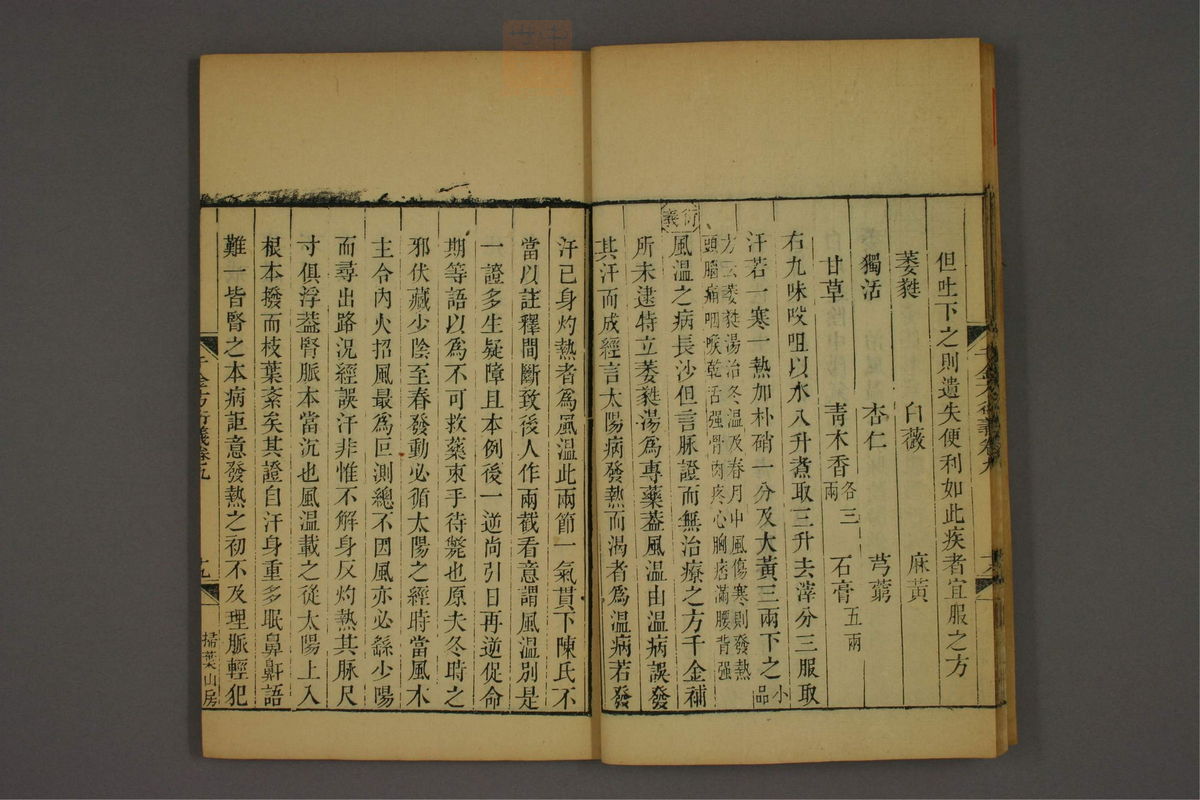 但吐下之則遺失便利如此疾者宜服之方
萎蕤 白薇 麻黃
獨活 杏仁 芎藭
甘草 青木香各三兩 石膏五兩
右九味㕮咀以水八升煮取三升去滓分三服取
汗若一寒一熱加朴硝一分及大黃三兩下之小品
方云萎蕤湯治冬溫及春月中風傷寒則發熱
頭腦痛咽喉乾舌强骨肉疼心胸痞滿腰背强
衍義
風溫之病長沙但言脉證而無治療之方千金補
所未逮特立萎蕤湯爲專藥葢風溫由溫病誤發
其汗而成經言太陽病發熱而渴者爲溫病若發
汗已身灼熱者爲風溫此兩節一氣貫下陳氏不
當以註釋間斷致後人作兩截看意謂風溫別是
一證多生疑障且本例後一逆尚引日再逆促命
期等語以爲不可救藥束手待斃也原夫冬時之
邪伏藏少陰至春發動必循太陽之經時當風木
主令內火招風最爲叵測總不因風亦必繇少陽
而尋出路況經誤汗非惟不解身反灼熱其脉尺
寸俱浮葢腎脈本當沉也風溫載之從太陽上入
根本撥而枝葉紊矣其證自汗身重多眠鼻鼾語
難一皆腎之本病詎意發熱之初不及理脈輕犯
千金方衍義卷五
掃葉山房